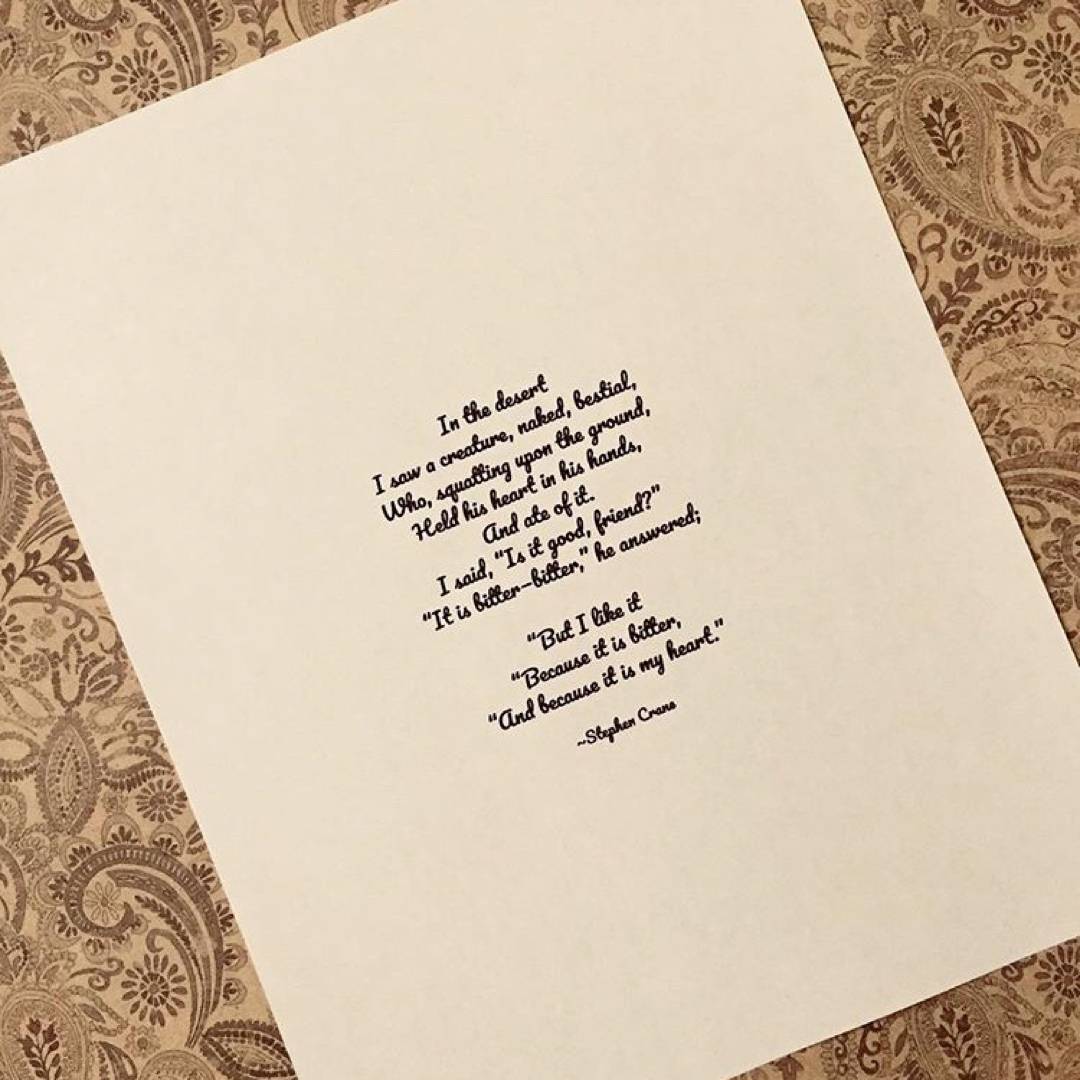 In the desert
I saw a creature, naked, bestial,
Who, squatting upon the ground,
Held his heart in his hands,
And ate of it.
I said, “Is it good, friend?”
“It is bitter—bitter,” he answered;
“But I like it
“Because it is bitter,
“And because it is my heart.”
~Stephen Crane